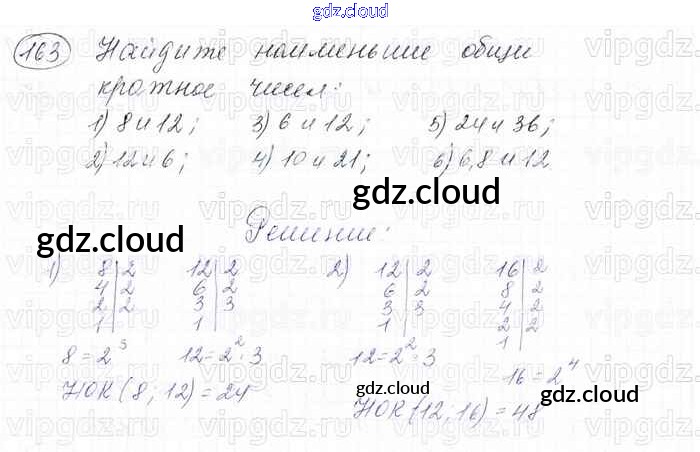 gdz.cloud
163 Найдите наименьшие общи
кратное чисел:
1) 8 и 12; 3) 6 и 12; 5) 24 и 36;
2) 12 и 6; 4) 10 и 21; 6) 6, 8 и 12
gdz.cloud
gdz.cloud
Решение:
1) 8|2 12|2 2) 12|2 16|2
4|2 6|2 6|2 8|2
2|2 3|3 3|3 4|2
1 1 1 2|2
1
8 = 2³ 12 = 2² · 3 12 = 2² · 3
16 = 2⁴
НОК (8; 12) = 24
gdz.cloud
gdz.cloud
НОК (12; 16) = 48